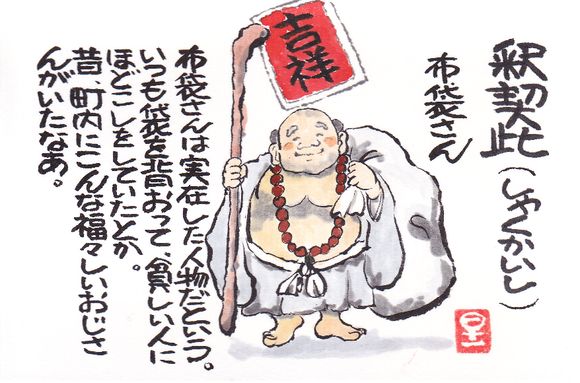 釈契此(しゃくかいし)
布袋さん
吉祥
布袋さんは実在した人物だという。
いつも袋を背おって、貧しい人に
ほどこしをしていたとか。
昔、町内にこんな福々しいおじさ
んがいたなあ。